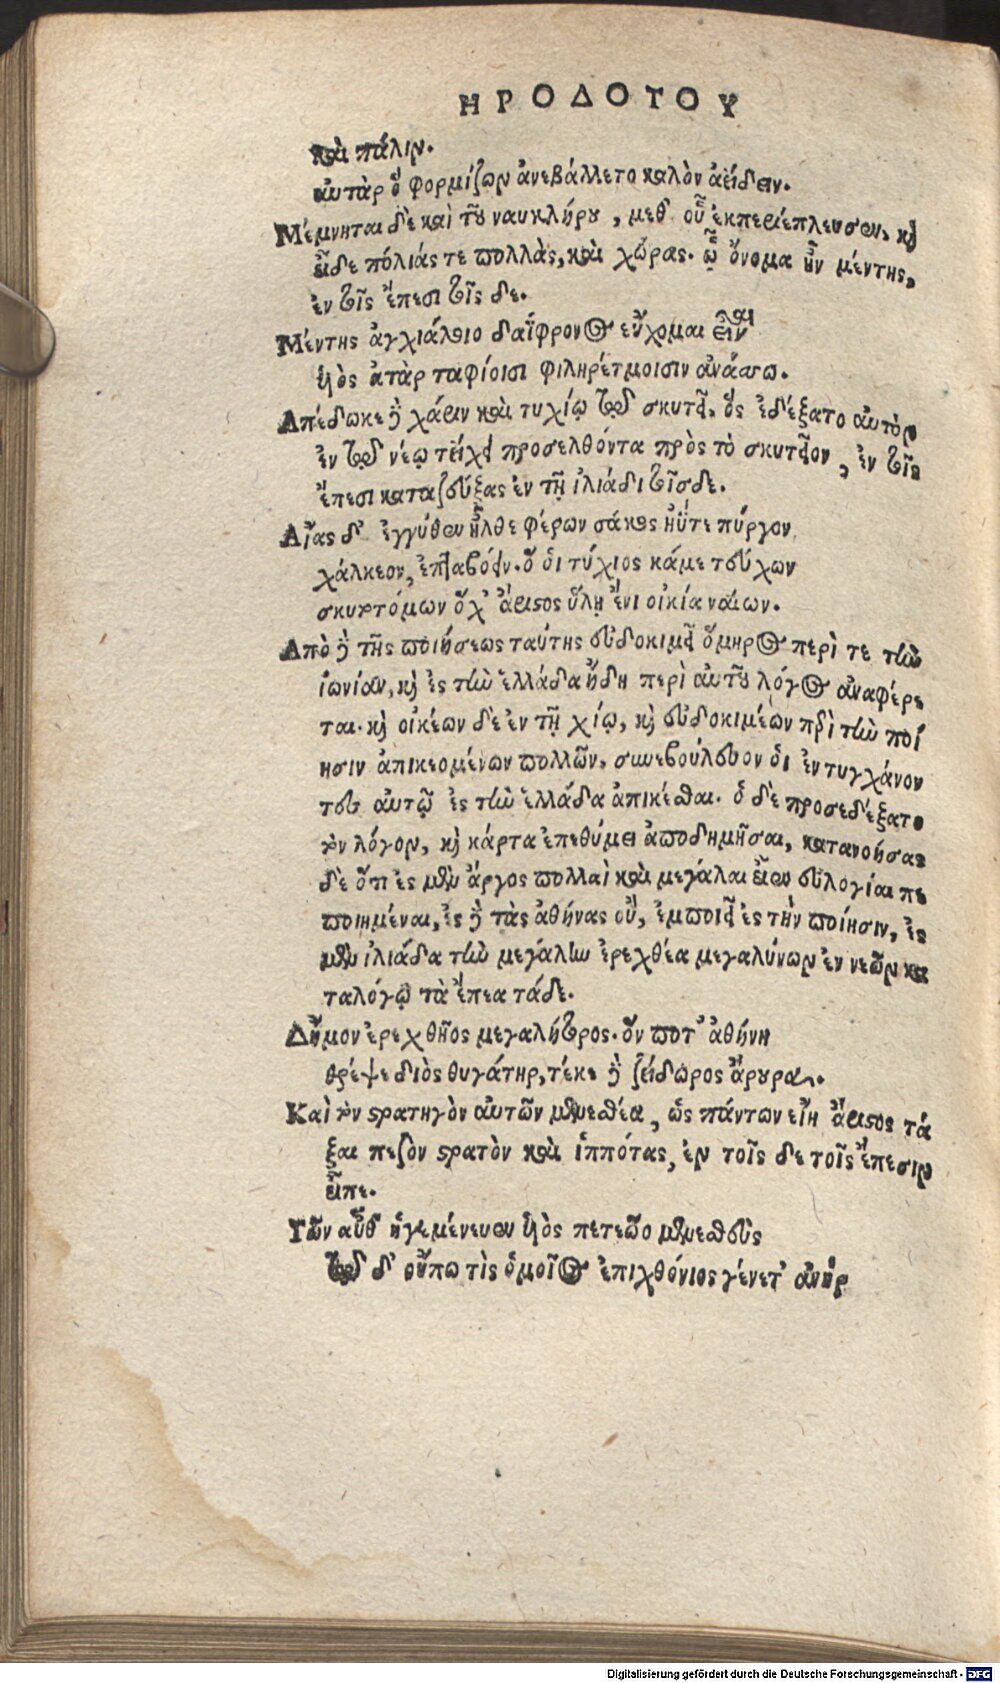 ΗΡΟΔΟΤΟΥ
καὶ πάλιν.
αὐτὰρ ὃ φορμίζων ἀνεβάλλετο καλὸν ἀείδειν.
Μέμνηται δὲ καὶ τοῦ ναυκλήρου, μεθ' οὗ ἐκπεριέπλευσεν, καὶ
εἶδε πόλιάς τε πολλὰς, καὶ χώρας. ᾧ ὄνομα ἦν μέντης,
ἐν τοῖς ἔπεσι τοῖς δε.
Μέντης ἀγχιάλοιο δαΐφρονος εὔχομαι εἶναι
ὑὸς ἀτὰρ ταφίοισι φιληρέτμοισιν ἀνάσσω.
Ἀπέδωκε δὲ χάριν καὶ τυχίῳ τῷ σκυτεῖ, ὃς ἐδέξατο αὐτὸν
ἐν τῷ νέῳ τείχει προσελθόντα πρὸς τὸ σκυτεῖον, ἐν τοῖς
ἔπεσι καταζεύξας ἐν τῇ ἰλιάδι τοῖσδε.
Αἴας δ' ἐγγύθεν ἦλθε φέρων σάκος ἠΰτε πύργον
χάλκεον, ἑπταβόειν. ὅ οἱ τύχιος κάμε τεύχων
σκυτοτόμων ὄχ' ἄριστος ὕλῃ ἔνι οἰκία ναίων.
Ἀπὸ δὲ τῆς ποιήσεως ταύτης εὐδοκιμεῖ ὅμηρος περί τε τὴν
ἰωνίαν, καὶ ἐς τὴν ἑλλάδα ἤδη περὶ αὐτοῦ λόγος ἀναφέρε
ται. καὶ οἰκέων δὲ ἐν τῇ χίῳ, καὶ εὐδοκιμέων περὶ τὴν ποί
ησιν ἀπικεομένων πολλῶν, συνεβούλευον οἱ ἐντυγχάνον
τες αὐτῷ ἐς τὴν ἑλλάδα ἀπικέσθαι. ὁ δὲ προσεδέξατο
τὸν λόγον, καὶ κάρτα ἐπεθύμει ἀποδημῆσαι, κατανοήσας
δὲ ὅτι ἐς μὲν ἄργος πολλαὶ καὶ μεγάλαι εἶεν εὐλογίαι πε
ποιημέναι, ἐς δὲ τὰς ἀθήνας οὔ, ἐμποιεῖ ἐς τὴν ποίησιν, ἐς
μὲν ἰλιάδα τὴν μεγάλην ἐρεχθέα μεγαλύνων ἐν νεῶν κα
ταλόγῳ τὰ ἔπεα τάδε.
Δῆμον ἐρεχθῆος μεγαλήτορος. ὅν ποτ' ἀθήνη
θρέψε διὸς θυγάτηρ, τέκε δὲ ζείδωρος ἄρουρα.
Καὶ τὸν στρατηγὸν αὐτῶν μενεσθέα, ὡς πάντων εἴη ἄριστος τά
ξαι πεζὸν στρατὸν καὶ ἱππότας, ἐν τοῖς δε τοῖς ἔπεσιν
εἶπε.
Τῶν αὖθ' ἡγεμόνευεν ὑὸς πετεῶο μενεσθεὺς
τῷ δ' οὔπω τὶς ὁμοῖος ἐπιχθόνιος γένετ' ἀνὴρ
Digitalisierung gefördert durch die Deutsche Forschungsgemeinschaft - DFG